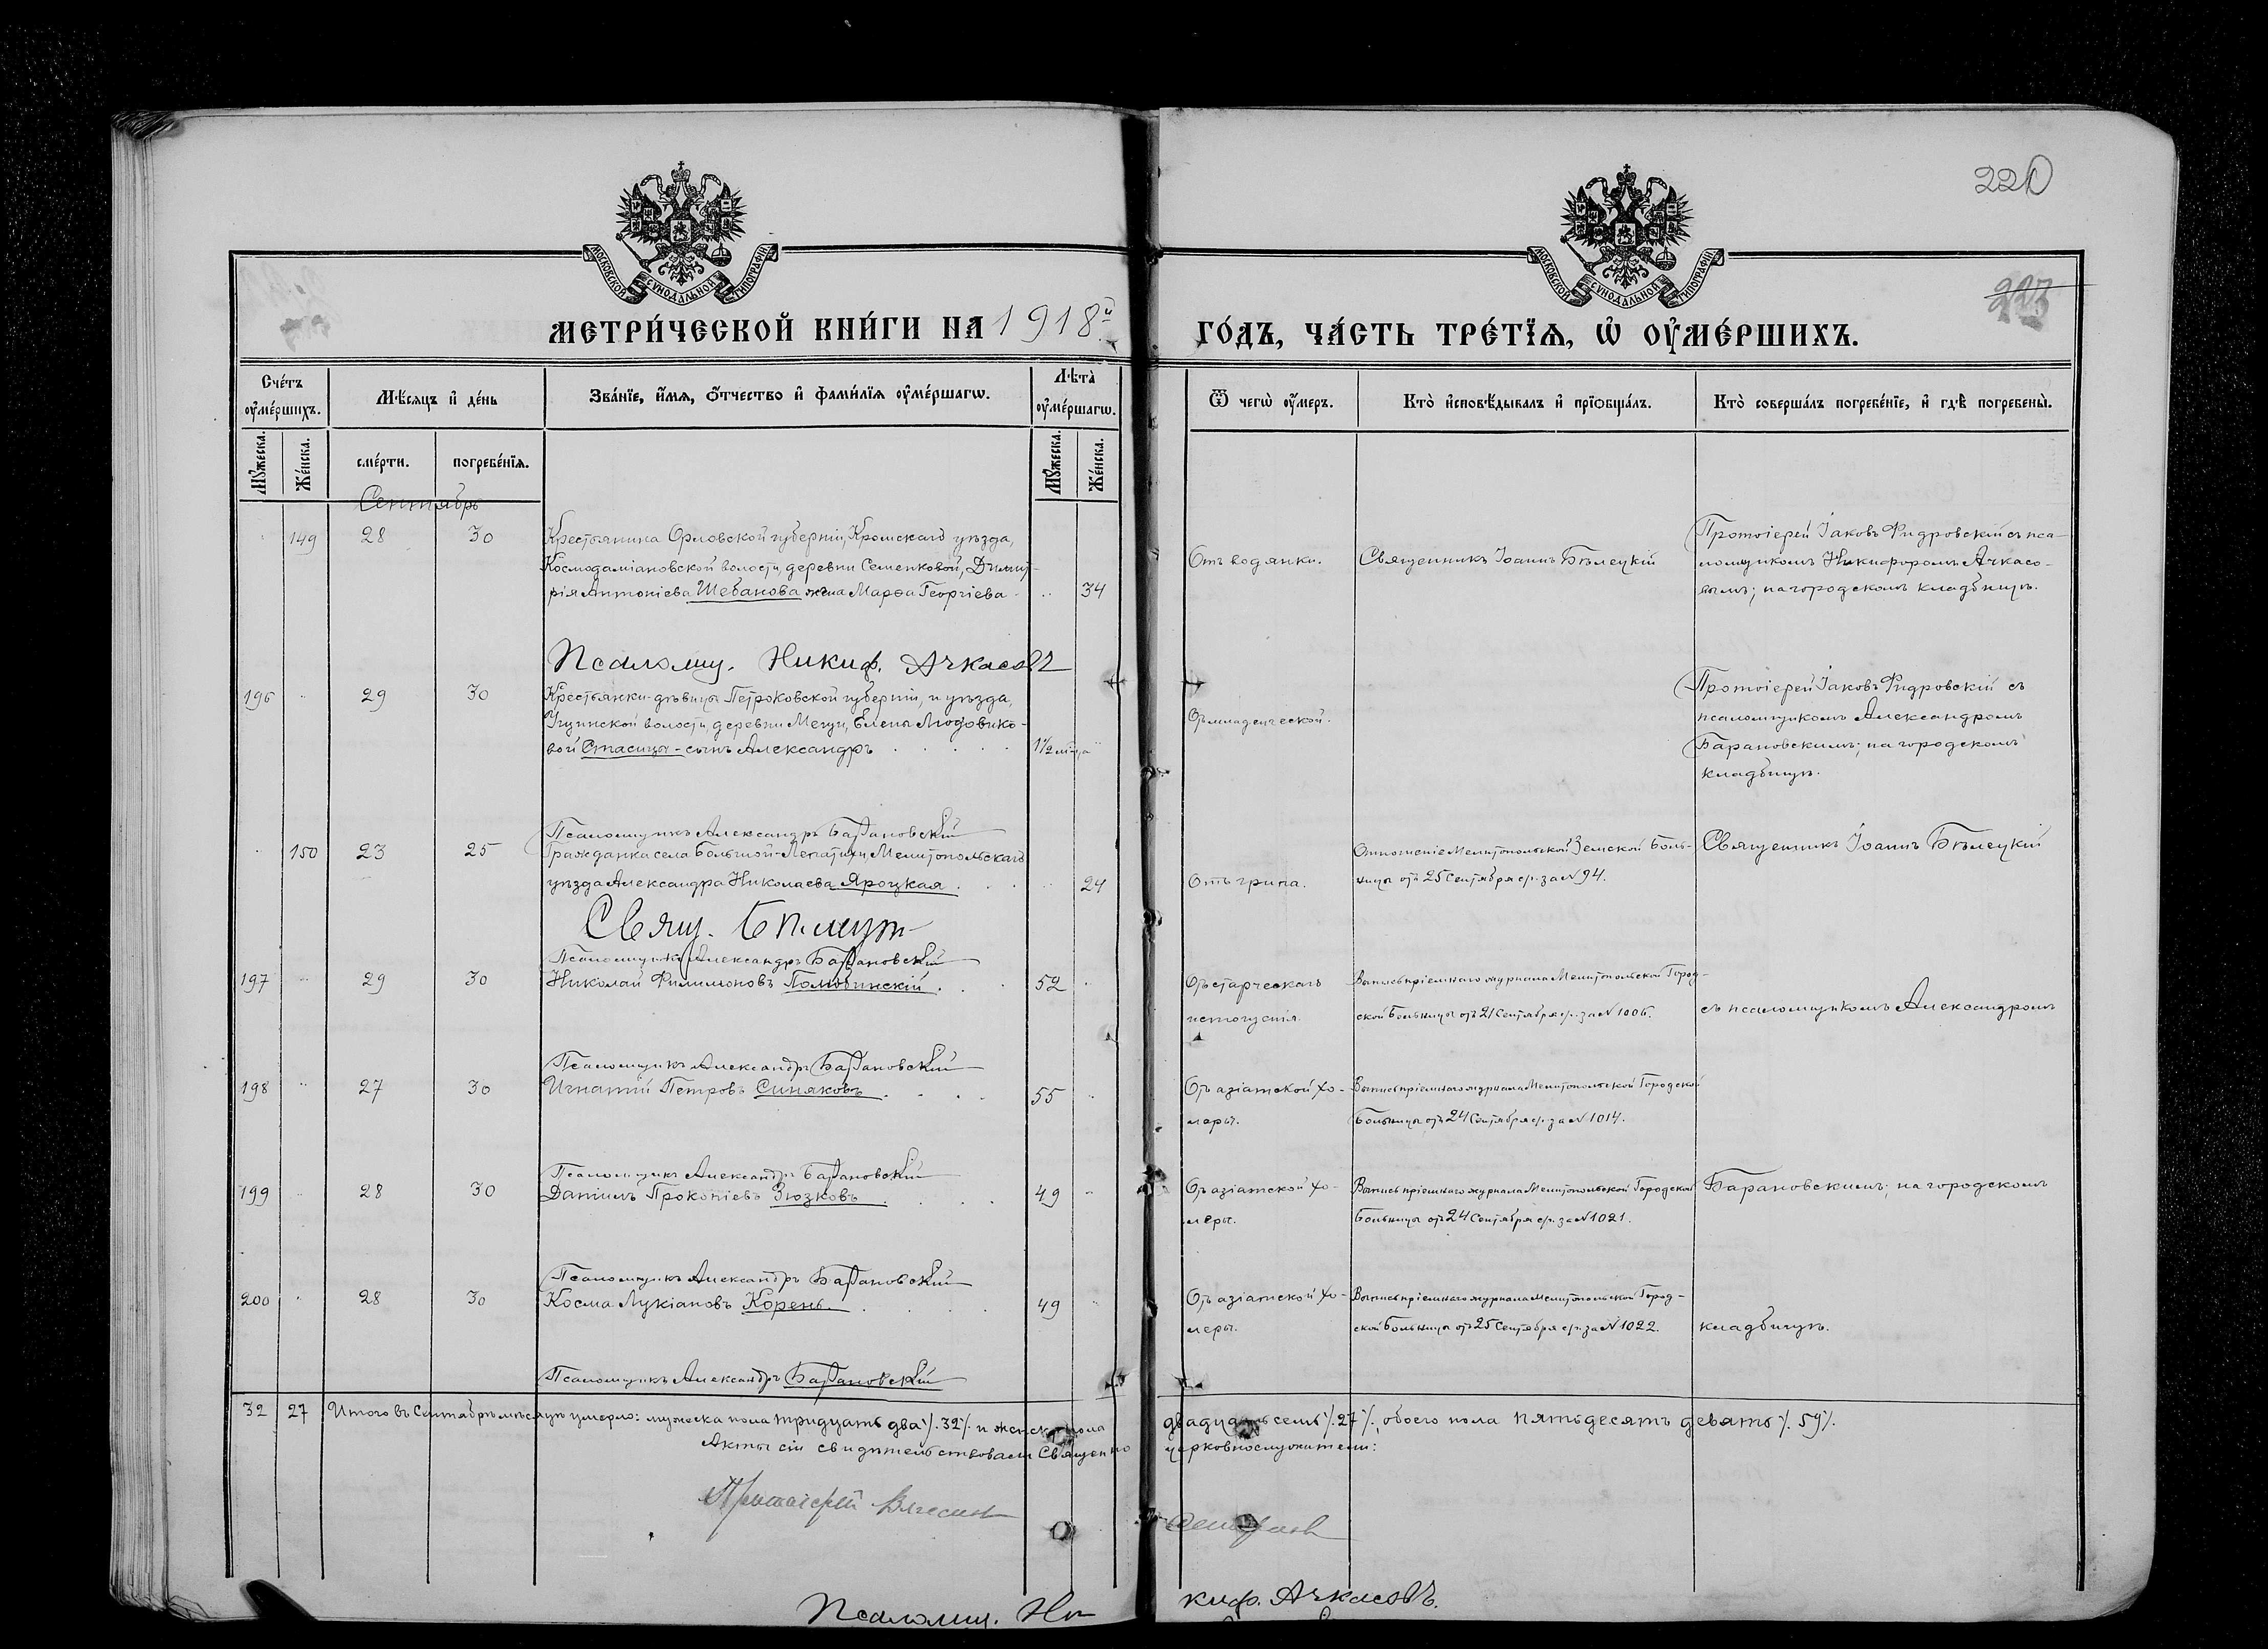 220
МОСКОВСКОЙ СѴНОДАЛЬНОЙ ТИПОГРАФІИ
МОСКОВСКОЙ СѴНОДАЛЬНОЙ ТИПОГРАФІИ
227
МЕТРИ́ЧЕСКОЙ КНИ́ГИ НА 1918й
ГО́ДЪ, ЧА́СТЬ ТРЕ́ТЇѦ, Ѡ҆ ОУ҆МЕ́РШИХЪ.
Сче́тъ оу҆ме́ршихъ.
Мѣ́сяцъ и҆ де́нь
Зва́нїе, и҆́мѧ, ѻ҆́тчество и҆ фами́лїѧ оу҆ме́ршагѡ.
Лѣта̀ оу҆ме́ршагѡ.
Ѿ чегѡ̀ оу҆́меръ.
Кто̀ и҆сповѣ́дывалъ и҆ прїѡбща́лъ.
Кто̀ соверша́лъ погребе́нїе, и҆ гдѣ̀ погребены̀.
Мꙋ́жеска.
Же́нска.
сме́рти.
погребе́нїѧ.
Мꙋ́жеска.
Же́нска.
Сентябрь
149 28 30 Крестьянина Орловской губерніи, Кромскаго уѣзда,
Космодаміановской волости, деревни Семенковой, Димит-
рія Антоніева Шебанова жена Марѳа Георгіева 34
Отъ водянки.
Священникъ Іоаннъ Бѣлецкій
Протоіерей Іаковъ Фидровскій съ пса-
ломщикомъ Никифоромъ Ачкасо-
вымъ; на городскомъ кладбищѣ.
Псаломщ. Никиф. Ачкасовъ
196 29 30 Крестьянки-дѣвицы Петроковской губерніи, и уѣзда,
волости, деревни Мещи, Елены Людовико-
вой Стасицы - сынъ Александръ 1 1/2 м-ца
Отъ младенческой.
Протоіерей Іаковъ Фидровскій съ
псаломщикомъ Александромъ
Барановскимъ; на городскомъ
кладбищѣ.
Псаломщикъ Александръ Барановскій
150 23 25 Гражданка села Большой-Лепатихи, Мелитопольскаго
уѣзда Александра Николаева Яроцкая 24
Отъ гриппа.
Отношеніе Мелитопольской Земской Боль-
ницы отъ 25 Сентября с/г. за № 94.
Священникъ Іоаннъ Бѣлецкій
Свящ. Бѣлецкій
Псаломщикъ Александръ Барановскій
197 29 30 Николай Филимоновъ Полюбинскій 52
Отъ старческаго
истощенія.
Выпись пріемнаго журнала Мелитопольской Город-
ской Больницы отъ 21 Сентября с/г. за № 1006.
съ псаломщикомъ Александромъ
Псаломщикъ Александръ Барановскій
198 27 30 Игнатій Петровъ Синяковъ 55
Отъ азіатской хо-
леры.
Выпись пріемнаго журнала Мелитопольской Городской
Больницы отъ 24 Сентября с/г. за № 1014.
Псаломщикъ Александръ Барановскій
199 28 30 Даніилъ Прокопіевъ Зюзковъ 49
Отъ азіатской хо-
леры.
Выпись пріемнаго журнала Мелитопольской Городской
Больницы отъ 24 Сентября с/г. за № 1021.
Барановскимъ; на городскомъ
Псаломщикъ Александръ Барановскій
200 28 30 Косма Лукіановъ Корень 49
Отъ азіатской хо-
леры.
Выпись пріемнаго журнала Мелитопольской Город-
ской Больницы отъ 25 Сентября с/г. за № 1022.
кладбищѣ.
Псаломщикъ Александръ Барановскій
32 27 Итого въ Сентябрѣ мѣсяцѣ умерло: мужеска пола тридцать два ٪. 32 ٪. и женска пола двадцать семь ٪. 27 ٪., обоего пола пятьдесятъ девять ٪. 59 ٪.
Акты сіи свидѣтельствовали Священно церковнослужители:
Протоіерей
Псаломщ. Никиф. Ачкасовъ.